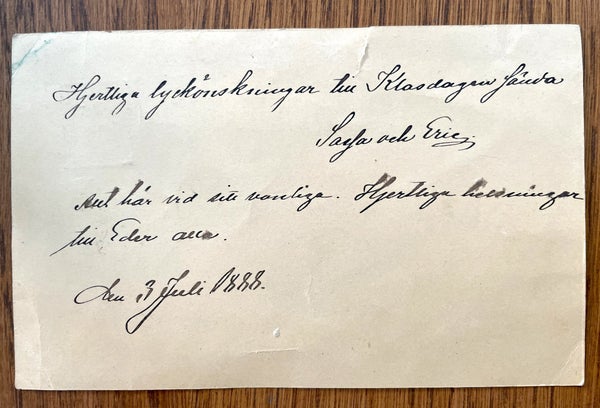 Hjertliga lyckönskningar till Klasdagen sända
och Eric.
Allt här vid sitt vanliga. Hjertliga helsningar
till Eder alla.
den 3 Juli 1888.